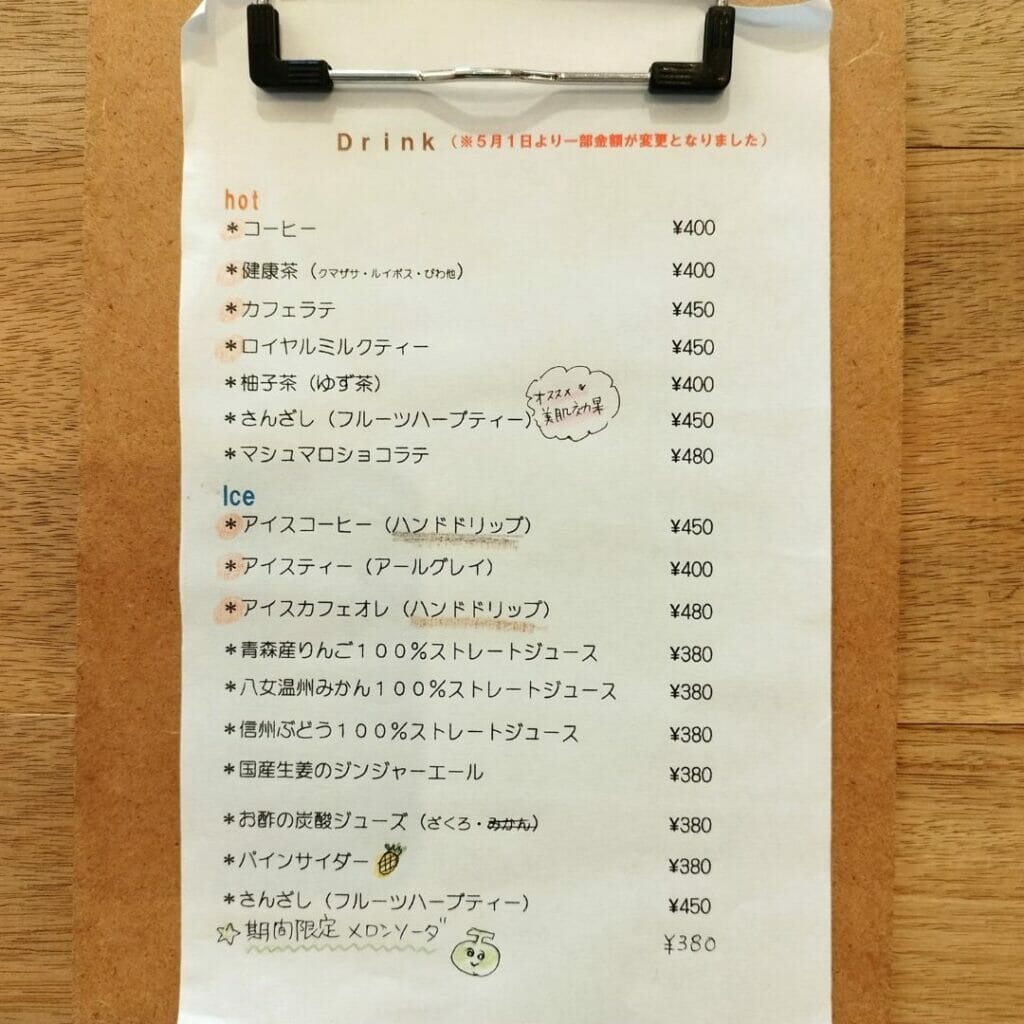 Drink（※５月１日より一部金額が変更となりました）
hot
＊コーヒー ¥400
＊健康茶（クマザサ・ルイボス・びわ他） ¥400
＊カフェラテ ¥450
＊ロイヤルミルクティー ¥450
＊柚子茶（ゆず茶） ¥400
オススメ
美肌効果
＊さんざし（フルーツハーブティー） ¥450
＊マシュマロショコラテ ¥480
Ice
＊アイスコーヒー（ハンドドリップ） ¥450
＊アイスティー（アールグレイ） ¥400
＊アイスカフェオレ（ハンドドリップ） ¥480
＊青森産りんご１００％ストレートジュース ¥380
＊八女温州みかん１００％ストレートジュース ¥380
＊信州ぶどう１００％ストレートジュース ¥380
＊国産生姜のジンジャーエール ¥380
＊お酢の炭酸ジューズ（ざくろ・みかん） ¥380
＊パインサイダー ¥380
＊さんざし（フルーツハーブティー） ¥450
☆期間限定 メロンソーダ ¥380